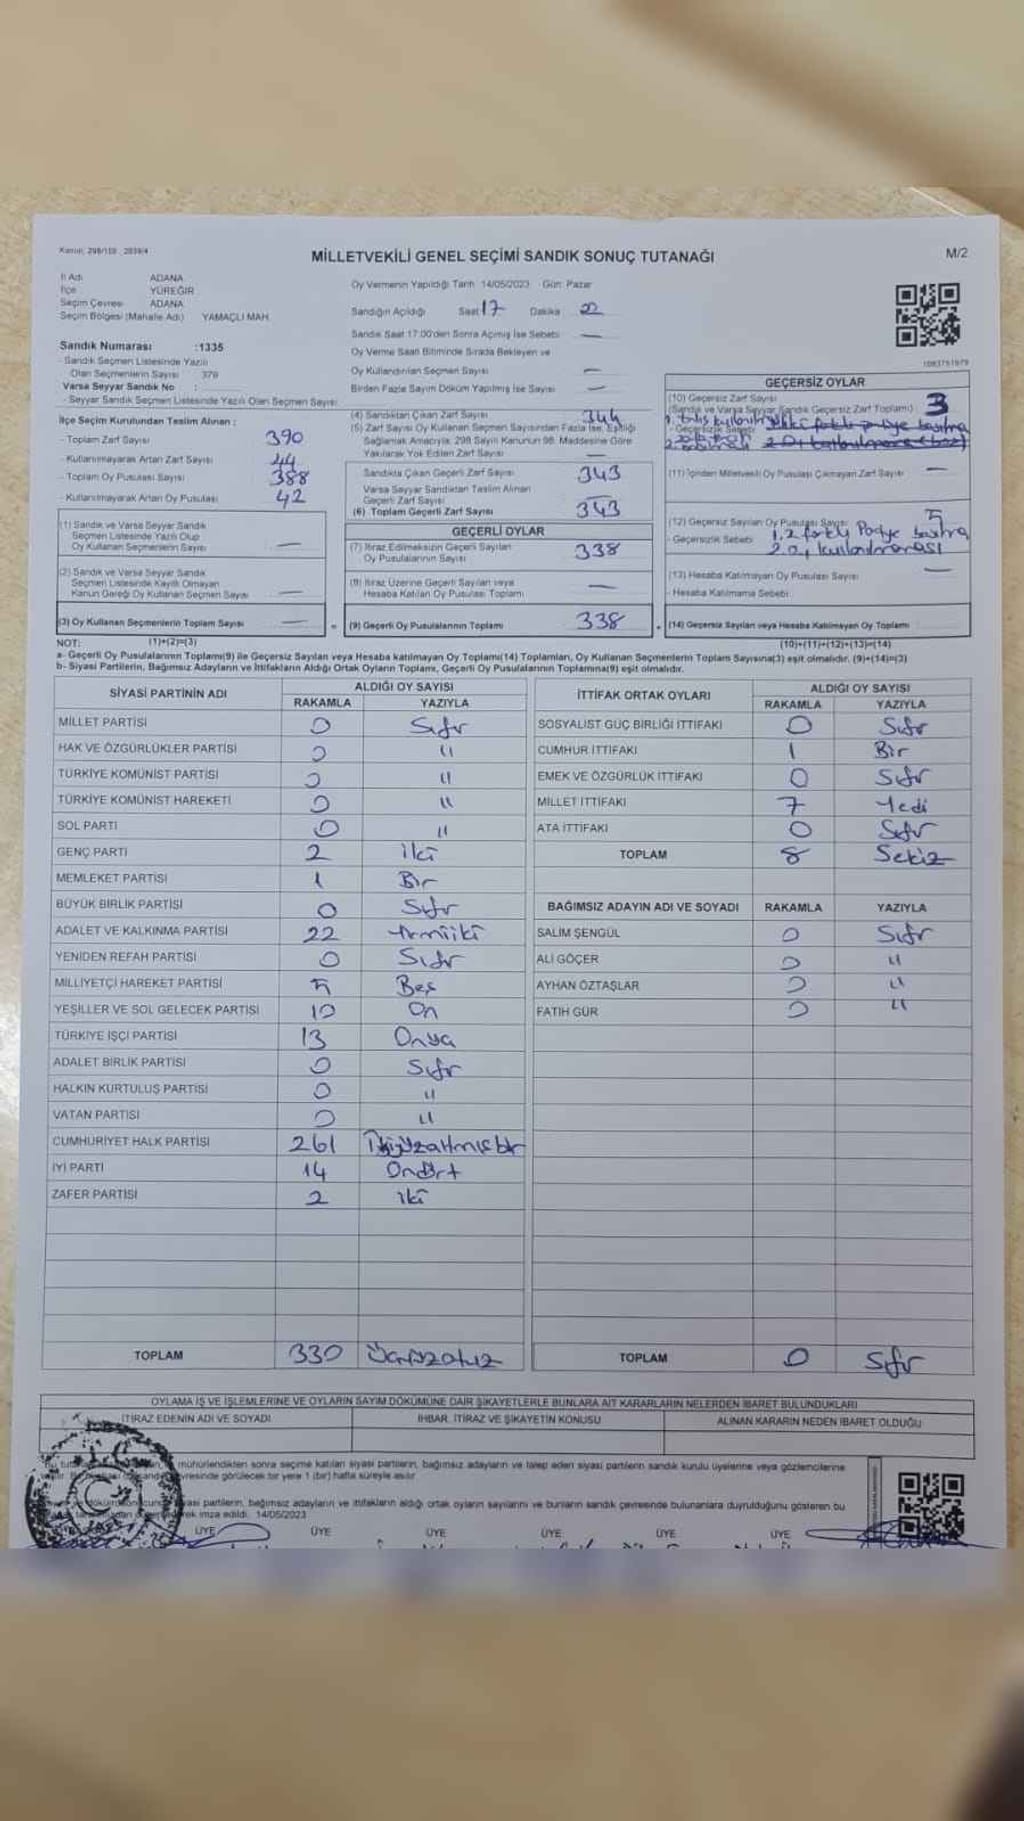 Kanun: 298/110 2839/4
MİLLETVEKİLİ GENEL SEÇİMİ SANDIK SONUÇ TUTANAĞI
M/2
İl Adı ADANA
İlçe YÜREĞİR
Seçim Çevresi ADANA
Seçim Bölgesi (Mahalle Adı) YAMAÇLI MAH.
Sandık Numarası :1335
- Sandık Seçmen Listesinde Yazılı
Olan Seçmenlerin Sayısı 379
Varsa Seyyar Sandık No :
- Seyyar Sandık Seçmen Listesinde Yazılı Olan Seçmen Sayısı
Oy Vermenin Yapıldığı Tarih 14/05/2023 Gün: Pazar
Sandığın Açıldığı Saat 17 Dakika 22
Sandık Saat 17.00'den Sonra Açılmış İse Sebebi —
Oy Verme Saati Bitiminde Sırada Bekleyen ve
Oy Kullandırılan Seçmen Sayısı —
Birden Fazla Sayım Döküm Yapılmış İse Sayısı —
1083751979
İlçe Seçim Kurulundan Teslim Alınan :
- Toplam Zarf Sayısı 390
- Kullanılmayarak Artan Zarf Sayısı 44
- Toplam Oy Pusulası Sayısı 388
- Kullanılmayarak Artan Oy Pusulası 42
(1) Sandık ve Varsa Seyyar Sandık
Seçmen Listesinde Yazılı Olup
Oy Kullanan Seçmenlerin Sayısı —
(2) Sandık ve Varsa Seyyar Sandık
Seçmen Listesinde Kayıtlı Olmayan
Kanun Gereği Oy Kullanan Seçmen Sayısı —
(3) Oy Kullanan Seçmenlerin Toplam Sayısı —
(4) Sandıktan Çıkan Zarf Sayısı 344
(5) Zarf Sayısı Oy Kullanan Seçmen Sayısından Fazla İse, Eşitliği
Sağlamak Amacıyla, 298 Sayılı Kanunun 98. Maddesine Göre
Yakılarak Yok Edilen Zarf Sayısı —
Sandıkta Çıkan Geçerli Zarf Sayısı 343
Varsa Seyyar Sandıktan Teslim Alınan
Geçerli Zarf Sayısı —
(6) Toplam Geçerli Zarf Sayısı 343
GEÇERLİ OYLAR
(7) İtiraz Edilmeksizin Geçerli Sayılan
Oy Pusulalarının Sayısı 338
(8) İtiraz Üzerine Geçerli Sayılan veya
Hesaba Katılan Oy Pusulası Toplamı —
= (9) Geçerli Oy Pusulalarının Toplamı 338
GEÇERSİZ OYLAR
(10) Geçersiz Zarf Sayısı
(Sandık ve Varsa Seyyar Sandık Geçersiz Zarf Toplamı) 3
- Geçersizlik Sebebi
(11) İçinden Milletvekili Oy Pusulası Çıkmayan Zarf Sayısı —
(12) Geçersiz Sayılan Oy Pusulası Sayısı 5
- Geçersizlik Sebebi 1. 2 farklı Partiye basılma
2. Oy kullanılmaması
(13) Hesaba Katılmayan Oy Pusulası Sayısı —
- Hesaba Katılmama Sebebi
+ (14) Geçersiz Sayılan veya Hesaba Katılmayan Oy Toplamı
NOT: (1)+(2)=(3) (10)+(11)+(12)+(13)=(14)
a- Geçerli Oy Pusulalarının Toplamı(9) ile Geçersiz Sayılan veya Hesaba katılmayan Oy Toplamı(14) Toplamları, Oy Kullanan Seçmenlerin Toplam Sayısına(3) eşit olmalıdır. (9)+(14)=(3)
b- Siyasi Partilerin, Bağımsız Adayların ve İttifakların Aldığı Ortak Oyların Toplamı, Geçerli Oy Pusulalarının Toplamına(9) eşit olmalıdır.
SİYASİ PARTİNİN ADI ALDIĞI OY SAYISI
RAKAMLA YAZIYLA
MİLLET PARTİSİ 0 Sıfır
HAK VE ÖZGÜRLÜKLER PARTİSİ 0 "
TÜRKİYE KOMÜNİST PARTİSİ 0 "
TÜRKİYE KOMÜNİST HAREKETİ 0 "
SOL PARTİ 0 "
GENÇ PARTİ 2 iki
MEMLEKET PARTİSİ 1 Bir
BÜYÜK BİRLİK PARTİSİ 0 Sıfır
ADALET VE KALKINMA PARTİSİ 22
YENİDEN REFAH PARTİSİ 0 Sıfır
MİLLİYETÇİ HAREKET PARTİSİ 5 Beş
YEŞİLLER VE SOL GELECEK PARTİSİ 10 On
TÜRKİYE İŞÇİ PARTİSİ 13
ADALET BİRLİK PARTİSİ 0 Sıfır
HALKIN KURTULUŞ PARTİSİ 0 "
VATAN PARTİSİ 0 "
CUMHURİYET HALK PARTİSİ 261 İkiyüzatmışbir
İYİ PARTİ 14 Ondört
ZAFER PARTİSİ 2 iki
TOPLAM 330 Üçyüzotuz
İTTİFAK ORTAK OYLARI ALDIĞI OY SAYISI
RAKAMLA YAZIYLA
SOSYALİST GÜÇ BİRLİĞİ İTTİFAKI 0 Sıfır
CUMHUR İTTİFAKI 1 Bir
EMEK VE ÖZGÜRLÜK İTTİFAKI 0 Sıfır
MİLLET İTTİFAKI 7 Yedi
ATA İTTİFAKI 0 Sıfır
TOPLAM 8 Sekiz
BAĞIMSIZ ADAYIN ADI VE SOYADI RAKAMLA YAZIYLA
SALİM ŞENGÜL 0 Sıfır
ALİ GÖÇER 0 "
AYHAN ÖZTAŞLAR 0 "
FATİH GÜR 0 "
TOPLAM 0 Sıfır
OYLAMA İŞ VE İŞLEMLERİNE VE OYLARIN SAYIM DÖKÜMÜNE DAİR ŞİKAYETLERLE BUNLARA AİT KARARLARIN NELERDEN İBARET BULUNDUKLARI
İTİRAZ EDENİN ADI VE SOYADI İHBAR, İTİRAZ VE ŞİKAYETİN KONUSU ALINAN KARARIN NEDEN İBARET OLDUĞU
mühürlendikten sonra seçime katılan siyasi partilerin, bağımsız adayların ve talep eden siyasi partilerin sandık kurulu üyelerine veya gözlemcilerine
çevresinde görülecek bir yere 1 (bir) hafta süreyle asılır.
siyasi partilerin, bağımsız adayların ve ittifakların aldığı ortak oyların sayılarını ve bunların sandık çevresinde bulunanlara duyrulduğunu gösteren bu
imza edildi. 14/05/2023
ÜYE ÜYE ÜYE ÜYE ÜYE ÜYE